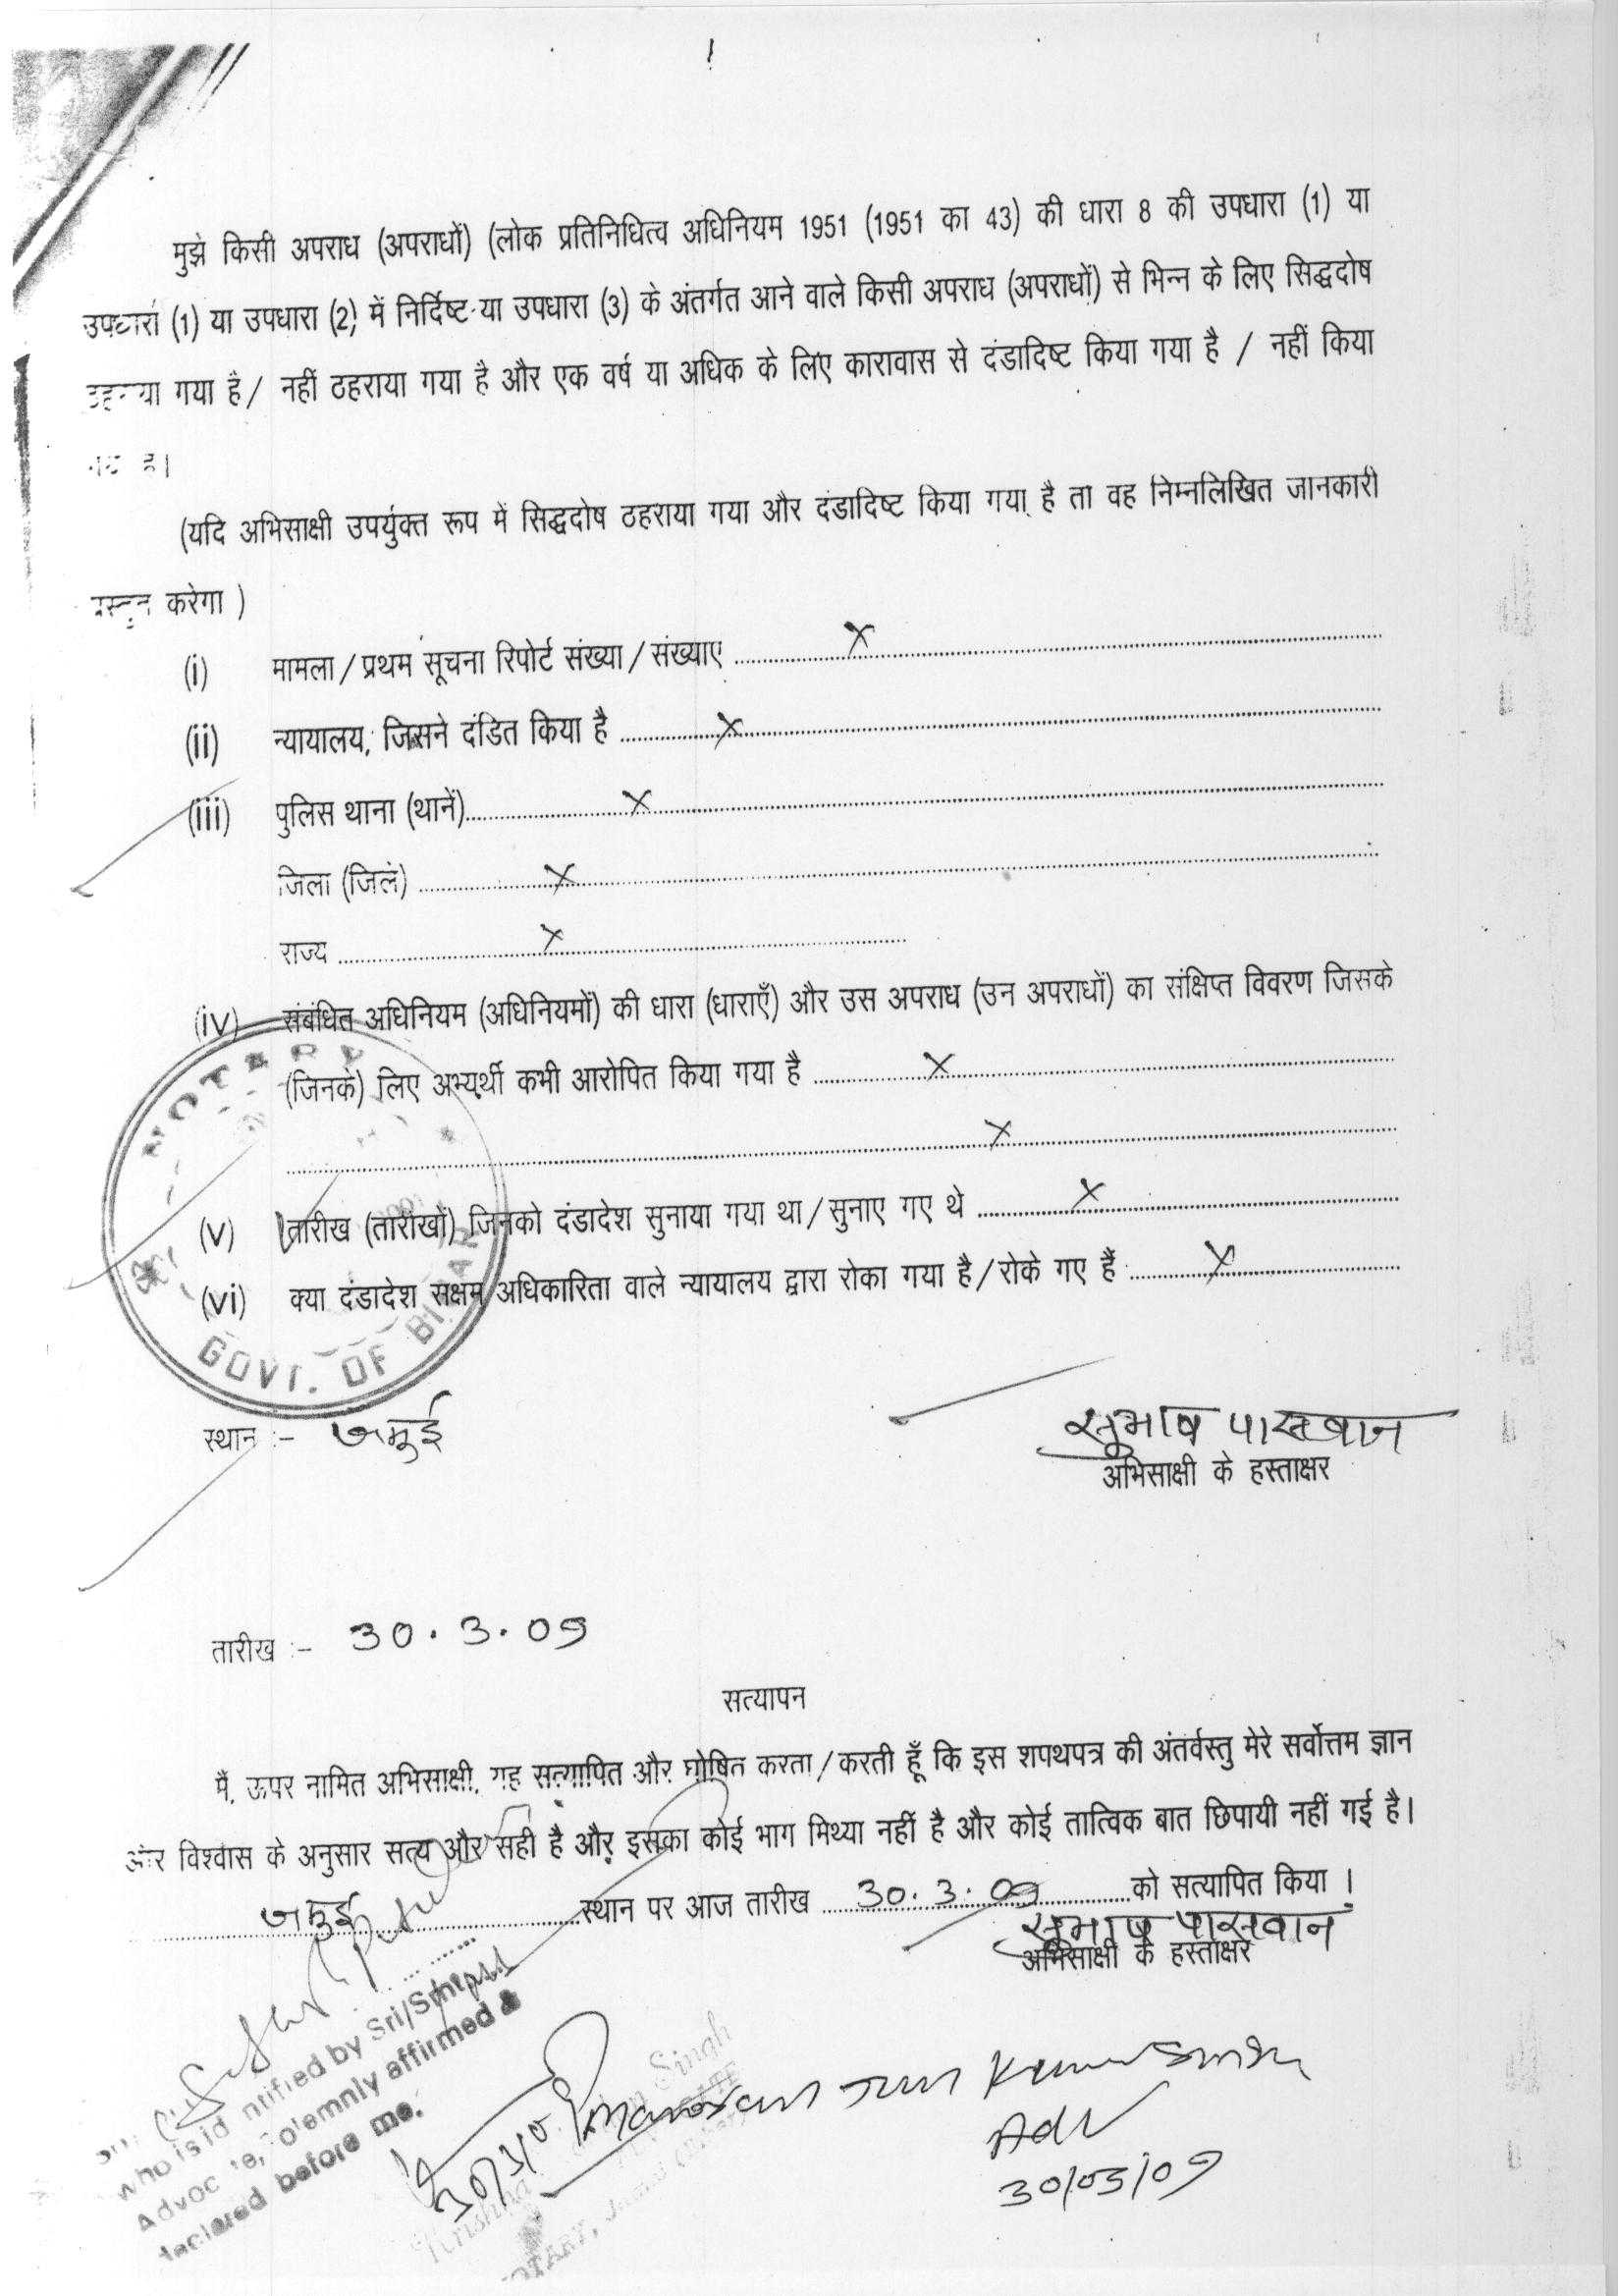 मुझे किसी अपराध (अपराधों) (लोक प्रतिनिधित्व अधिनियम 1951 (1951 का 43) की धारा 8 की उपधारा (1) या
उपधारा (1) या उपधारा (2) में निर्दिष्ट या उपधारा (3) के अंतर्गत आने वाले किसी अपराध (अपराधों) से भिन्न के लिए सिद्धदोष
ठहराया गया है / नहीं ठहराया गया है और एक वर्ष या अधिक के लिए कारावास से दंडादिष्ट किया गया है / नहीं किया
गया है।
(यदि अभिसाक्षी उपर्युक्त रूप में सिद्धदोष ठहराया गया और दंडादिष्ट किया गया है ता वह निम्नलिखित जानकारी
प्रस्तुत करेगा )
(i) मामला / प्रथम सूचना रिपोर्ट संख्या / संख्याए ........ X ........
(ii) न्यायालय, जिसने दंडित किया है ........ X ........
(iii) पुलिस थाना (थानें) ........ X ........
जिला (जिले) ........ X ........
राज्य ........ X ........
(iv) संबंधित अधिनियम (अधिनियमों) की धारा (धाराएँ) और उस अपराध (उन अपराधों) का संक्षिप्त विवरण जिसके
(जिनके) लिए अभ्यर्थी कभी आरोपित किया गया है ........ X ........
........ X ........
(v) तारीख (तारीखों) जिनको दंडादेश सुनाया गया था / सुनाए गए थे ........ X ........
(vi) क्या दंडादेश सक्षम अधिकारिता वाले न्यायालय द्वारा रोका गया है / रोके गए हैं ........ X ........
NOTARY
GOVT. OF BIHAR
स्थान :- जमुई
सुभाष पासवान
अभिसाक्षी के हस्ताक्षर
तारीख :- 30.3.09
सत्यापन
मैं, ऊपर नामित अभिसाक्षी, यह सत्यापित और घोषित करता / करती हूँ कि इस शपथपत्र की अंतर्वस्तु मेरे सर्वोत्तम ज्ञान
और विश्वास के अनुसार सत्य और सही है और इसका कोई भाग मिथ्या नहीं है और कोई तात्विक बात छिपायी नहीं गई है।
जमुई ........ स्थान पर आज तारीख ... 30.3.09 ........ को सत्यापित किया ।
सुभाष पासवान
अभिसाक्षी के हस्ताक्षर
who is identified by Sri/Smt
Advocate, solemnly affirmed &
declared before me.
Singh
NOTARY,
Kumar Sinha
Adv
30/03/09